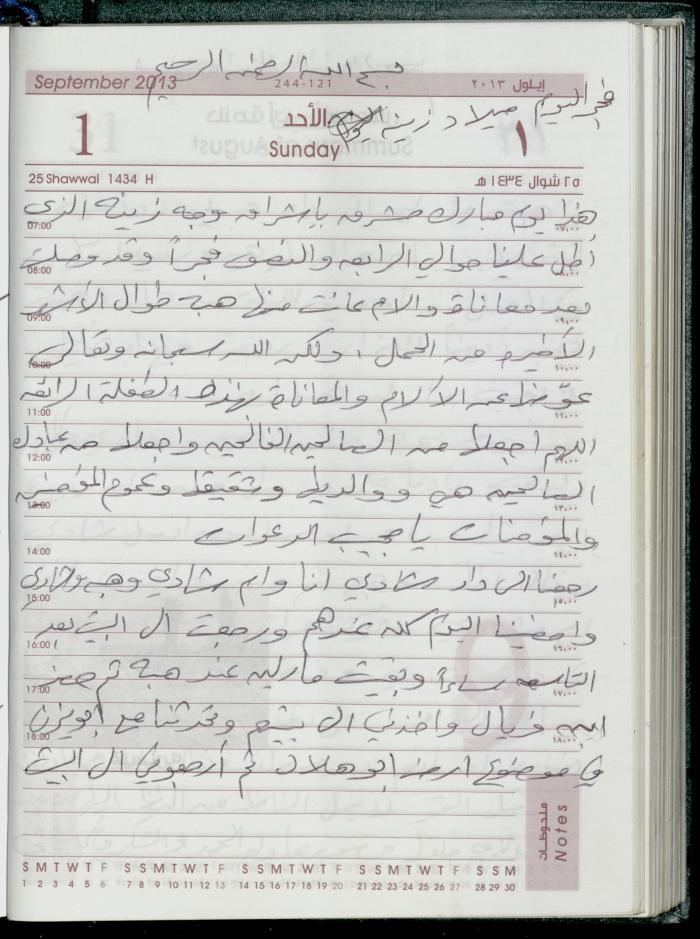 بسم الله الرحمن الرحيم
September 2013 244-121 إيلول ٢٠١٣
فجر اليوم ميلاد زينة
1 الأحد ١
Sunday
25 Shawwal 1434 H ٢٥ شوال ١٤٣٤ هـ
هذا يوم مبارك مشرق باشراقه وجه زينة الذي
07:00 ٠٧,٠٠
أطل علينا حوالي الرابعة والنصف فجراً وقد وصلت
08:00 ٠٨,٠٠
بعد معاناة والام عانت منها هبه طوال الأشهر
09:00 ٠٩,٠٠
الأخيرة من الحمل ، ولكن الله سبحانه وتعالى
10:00 ١٠,٠٠
عوضنا عن الآلام والمعاناة بهذه الطفلة الرائعة
11:00 ١١,٠٠
اللهم اجعلها من الصالحين الفالحين واجعلها من عبادك
12:00 ١٢,٠٠
الصالحين هي ووالديها وشقيقها وعموم المؤمنين
13:00 ١٣,٠٠
والمؤمنات يا مجيب الدعوات
14:00 ١٤,٠٠
رجعنا الى دار شادي انا وام شادي وهبه وشادي
15:00 ١٥,٠٠
وامضينا اليوم كله عندهم ورجعت الى البيت بعد
16:00 ١٦,٠٠
التاسعه مساءاً وبقيت مارلين عند هبة ثم حضر
17:00 ١٧,٠٠
ابيه وفريال واخذني الى بيتهم وتحدثنا مع ابو يزن
18:00 ١٨,٠٠
في موضوع ارض ابو هلال ثم أرجعوني الى البيت
ملحوظات
Notes
S M T W T F S S M T W T F S S M T W T F S S M T W T F S S M
1 2 3 4 5 6 7 8 9 10 11 12 13 14 15 16 17 18 19 20 21 22 23 24 25 26 27 28 29 30